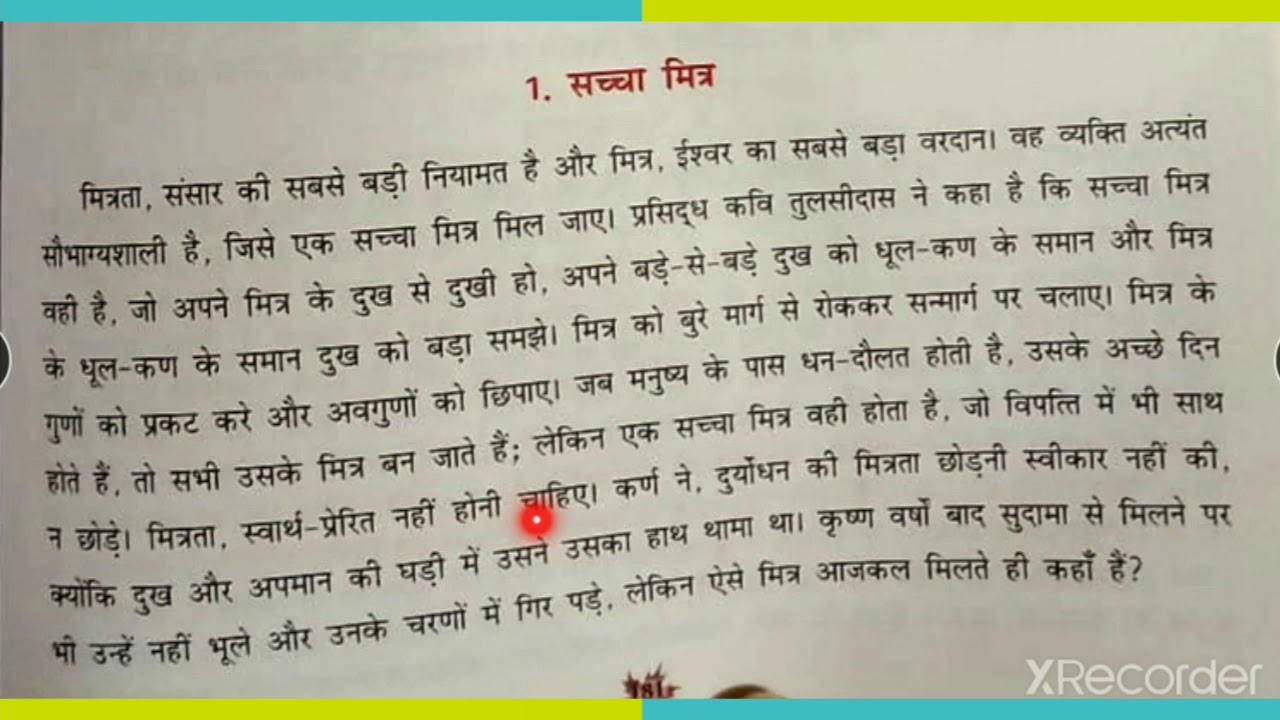 1. सच्चा मित्र
मित्रता, संसार की सबसे बड़ी नियामत है और मित्र, ईश्वर का सबसे बड़ा वरदान। वह व्यक्ति अत्यंत
सौभाग्यशाली है, जिसे एक सच्चा मित्र मिल जाए। प्रसिद्ध कवि तुलसीदास ने कहा है कि सच्चा मित्र
वही है, जो अपने मित्र के दुख से दुखी हो, अपने बड़े-से-बड़े दुख को धूल-कण के समान और मित्र
के धूल-कण के समान दुख को बड़ा समझे। मित्र को बुरे मार्ग से रोककर सन्मार्ग पर चलाए। मित्र के
गुणों को प्रकट करे और अवगुणों को छिपाए। जब मनुष्य के पास धन-दौलत होती है, उसके अच्छे दिन
होते हैं, तो सभी उसके मित्र बन जाते हैं; लेकिन एक सच्चा मित्र वही होता है, जो विपत्ति में भी साथ
न छोड़े। मित्रता, स्वार्थ-प्रेरित नहीं होनी चाहिए। कर्ण ने, दुर्योधन की मित्रता छोड़नी स्वीकार नहीं की,
क्योंकि दुख और अपमान की घड़ी में उसने उसका हाथ थामा था। कृष्ण वर्षों बाद सुदामा से मिलने पर
भी उन्हें नहीं भूले और उनके चरणों में गिर पड़े, लेकिन ऐसे मित्र आजकल मिलते ही कहाँ हैं?
181
XRecorder